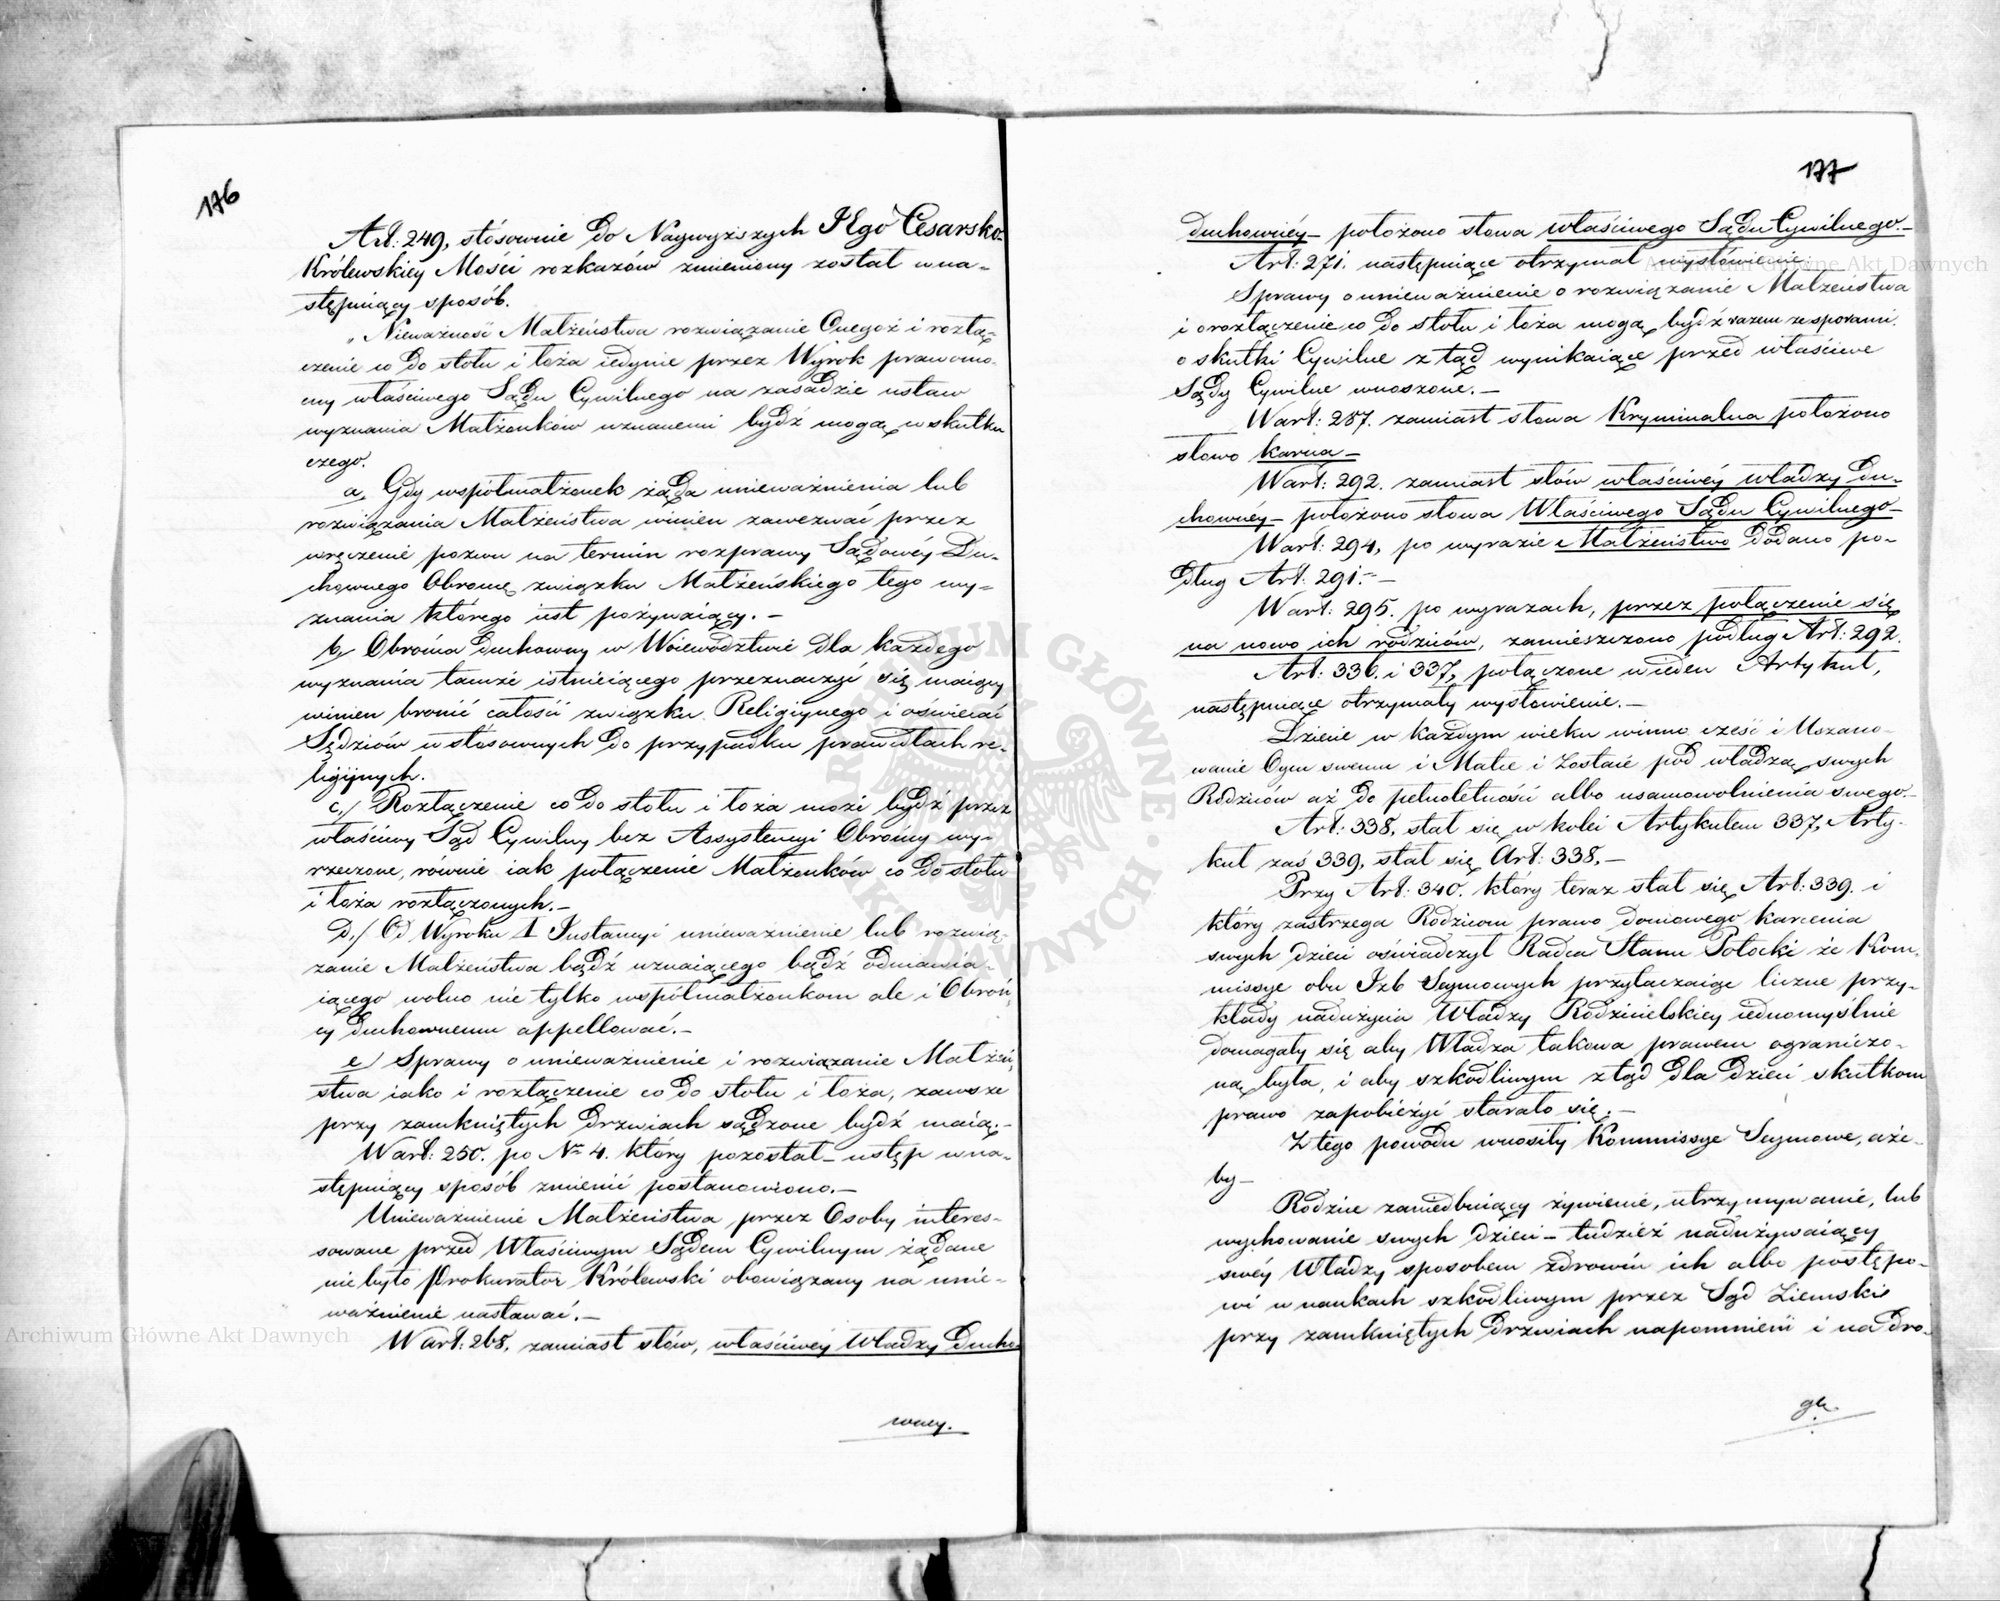 176
Art: 249, stósownie do Naywyższych JEgo Cesarsko-
Królewskiey Mości rozkazów zmieniony został wna-
stępuiący sposób.
„Nieważność Małżeństwa rozwiązanie Onegoż i rozłą-
czenie co do stołu i łoża iedynie przez Wyrok prawomo-
cny właściwego Sądu Cywilnego na zasadzie ustaw
wyznania Małżonków uznanemi bydź mogą, w skutku
czego.
a, Gdy współmałżonek żąda unieważnienia lub
rozwiązania Małżeństwa winien zawezwać przez
wręczenie pozwu na termin rozprawy Sądowéy Du-
chownego Obrońcę związku Małżeńskiego tego wy-
znania którego iest pożywaiący.-
b, Obrońca duchowny w Woiewództwie dla każdego
wyznania tamże istnieiącego przeznaczyć się maiący
winien bronić całości związku Religiynego i oświecać
Sędziów w stosownych do przypadku prawidłach re-
ligijnych.
c,/ Rozłączenie co do stołu i łoża może bydź przez
właściwy Sąd Cywilny bez Assystencyi Obrońcy wy-
rzeczone, równie iak połączenie Małżonków co do stołu
i łoża rozłączonych.-
d./ Od Wyroku I Instancyi unieważnienie lub rozwią-
zanie Małżeństwa bądź uznaiącego bądź odmawia-
iącego wolno nie tylko współmałżonkom ale i Obroń-
cy duchownemu appellować.-
e/ Sprawy o unieważnienie i rozwiązanie Małżeń-
stwa iako i rozłączenie co do stołu i łoża, zawsze
przy zamkniętych drzwiach sądzone bydź maią.-
W art: 250. po Nr 4. który pozostał - ustęp wna-
stępuiący sposób zmienić postanowiono.-
Unieważnienie Małżeństwa przez Osoby interes-
sowane przed Właściwym Sądem Cywilnym żądane
nie było Prokurator Królewski obowiązany na unie-
ważnienie nastawać.-
W art: 268, zamiast słów, właściwéy WładzyDucho-
wney.
177
Duchownéy - położono słowa właściwego Sądu Cywilnego.-
Art: 271. następuiące otrzymał wysłowienie.
Sprawy o unieważnienie o rozwiązanie Małżeństwa
i o rozłączenie co do stołu i łoża mogą bydź razem ze sporami
o skutki Cywilne z tąd wynikaiące przed właściwe
Sądy Cywilne wnoszone.-
W art: 287. zamiast słowa Kryminalna położono
słowo karna-
W art: 292. zamiast słów właściwéy władzy Du-
chownéy - położono słowa Właściwego Sądu Cywilnego-
W art: 294, po wyrazie Małżeństwo dodano po-
dług Art. 291.-
W art: 295. po wyrazach, przez połączenie się
na nowo ich rodziców, zamieszczono podług Art: 292.
Art: 336. i 337, połączone wieden Artykuł,
następuiące otrzymały wysłowienie.-
Dziecie w każdym wieku winno cześć i Uszano-
wanie Oycu swemu i Matce i Zostaie pod władzą swych
Rodziców aż do pełnoletności albo usamowolnienia swego.-
Art: 338, stał się w kolei Artykułem 337, Arty-
kuł zaś 339, stał się Art: 338,-
Przy Art: 340. który teraz stał się Art: 339. i
który zastrzega Rodzicom prawo domowego karcenia
swych dzieci oświadczył Radca Stanu Potocki że Kom-
missye obu Izb Seymowych przytaczaiąc liczne przy-
kłady nadużycia Władzy Rodzicielskiey iednomyślnie
domagały się aby Władza takowa prawem ograniczo-
ną była, i aby szkodliwym ztąd dla dzieci skutkom
prawo zapobieżyć starało się.-
Z tego powodu wnosiły Kommissye Seymowe, aże-
by-
Rodzice zaniedbuiący żywienie, utrzymywanie, lub
wychowanie swych dzieci - tudzież nadużywaiący
swéy Władzy sposobem zdrowiu ich albo postępo-
wi w naukach szkodliwym przez Sąd Ziemski
przy zamkniętych drzwiach napomnieni i na dro-
gę.
Archiwum Główne Akt Dawnych
Archiwum Główne Akt Dawnych
ARCHIWUM GŁÓWNE AKT DAWNYCH